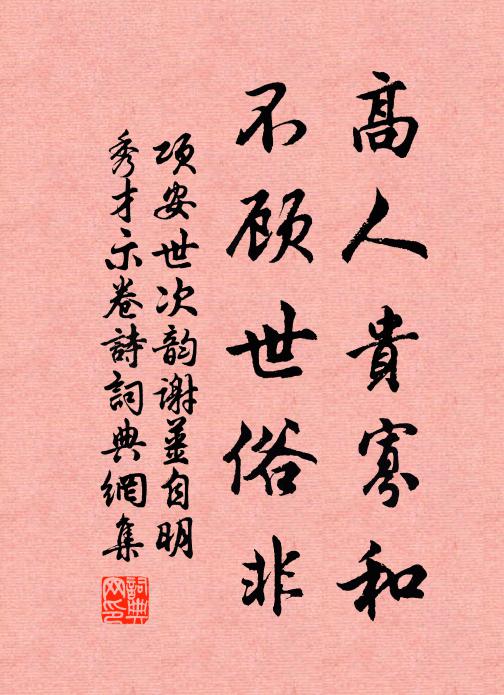 高人貴寡和
不顾世俗非
项安世次韵谢姜自明
秀才示卷詩詞典網集
詞典
网印